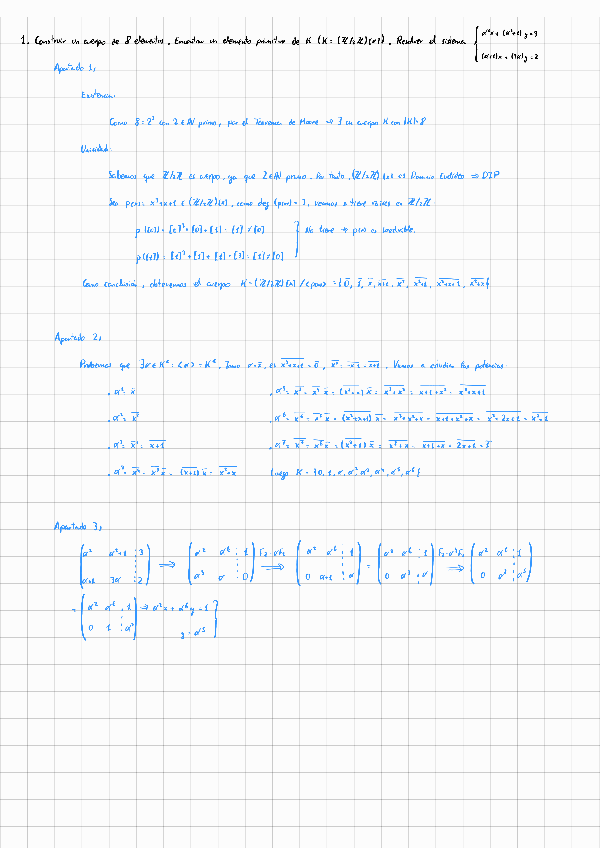 1. Construir un cuerpo de 8 elementos. Encontrar un elemento primitivo de K (K = (ℤ/2ℤ)(α)). Resolver el sistema { α²x + (α²+1)y = 3
(α+1)x + (3α)y = 2
Apartado 1,
Existencia:
Como 8 = 2³ con 2 ∈ ℕ primo, por el Teorema de Moore ⇒ ∃ un cuerpo K con |K| = 8
Unicidad:
Sabemos que ℤ/2ℤ es cuerpo, ya que 2 ∈ ℕ primo. Por tanto, (ℤ/2ℤ)[x] es Dominio Euclídeo ⇒ DIP
Sea p(x) = x³+x+1 ∈ (ℤ/2ℤ)[x], como deg(p(x)) = 3, veamos si tiene raíces en ℤ/2ℤ:
p([0]) = [0]³ + [0] + [1] = [1] ≠ [0]
No tiene ⇒ p(x) es irreducible.
p([1]) = [1]³ + [1] + [1] = [3] = [1] ≠ [0]
Como conclusión, obtenemos el cuerpo K = (ℤ/2ℤ)[x] / (p(x)) = {0, 1, x, x+1, x², x²+1, x²+x+1, x²+x}
Apartado 2,
Probemos que ∃α ∈ K*: ⟨α⟩ = K*. Tomo α = x, x³+x+1 = 0, x³ = -x-1 = x+1. Vamos a estudiar las potencias:
· α¹ = x · α⁵ = x⁵ = x⁴ x = (x²+x) x = x³+x² = x+1+x² = x²+x+1
· α² = x² · α⁶ = x⁶ = x⁵ x = (x²+x+1) x = x³+x²+x = x+1+x²+x = x²+2x+1 = x²+1
· α³ = x³ = x+1 · α⁷ = x⁷ = x⁶ x = (x²+1) x = x³+x = x+1+x = 2x+1 = 1
· α⁴ = x⁴ = x³ x = (x+1) x = x²+x Luego K = {0, 1, α, α², α³, α⁴, α⁵, α⁶}
Apartado 3,
( α² α²+1 ⋮ 3 ) ⟹ ( α² α⁶ ⋮ 1 ) F₂-αF₁ ⟹ ( α² α⁶ ⋮ 1 ) = ( α² α⁶ ⋮ 1 ) F₂·α⁴F₂ ⟹ ( α² α⁶ ⋮ 1 )
( α+1 3α ⋮ 2 ) ( α³ α ⋮ 0 ) ( 0 α+1 ⋮ α ) ( 0 α³ ⋮ α ) ( 0 α⁷ ⋮ α⁵ )
= ( α² α⁶ ⋮ 1 ) → α²x + α⁶y = 1
( 0 1 ⋮ α⁵ ) y = α⁵